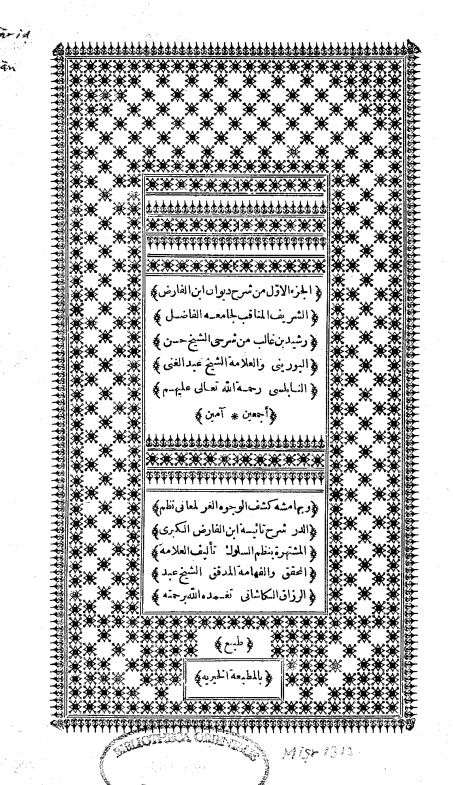 ārid
ān
﴿الجزء الاول من شرح ديوان ابن الفارض﴾
﴿الشريف المناقب لجامعه الفاضل﴾
﴿رشيد بن غالب من شرحى الشيخ حسن﴾
﴿البورينى والعلامة الشيخ عبد الغنى﴾
﴿النابلسى رحمة الله تعالى عليهم﴾
﴿أجمعين * آمين﴾
﴿وبهامشه كشف الوجوه الغر لمعانى نظم﴾
﴿الدر شرح تائية ابن الفارض الكبرى﴾
﴿المشتهرة بنظم السلوك تأليف العلامة﴾
﴿المحقق والفهامة المدقق الشيخ عبد﴾
﴿الرزاق الكاشانى تغمده الله برحمته﴾
﴿طبع﴾
﴿بالمطبعة الخيرية﴾
BIBLIOTHECA
Misr 1313